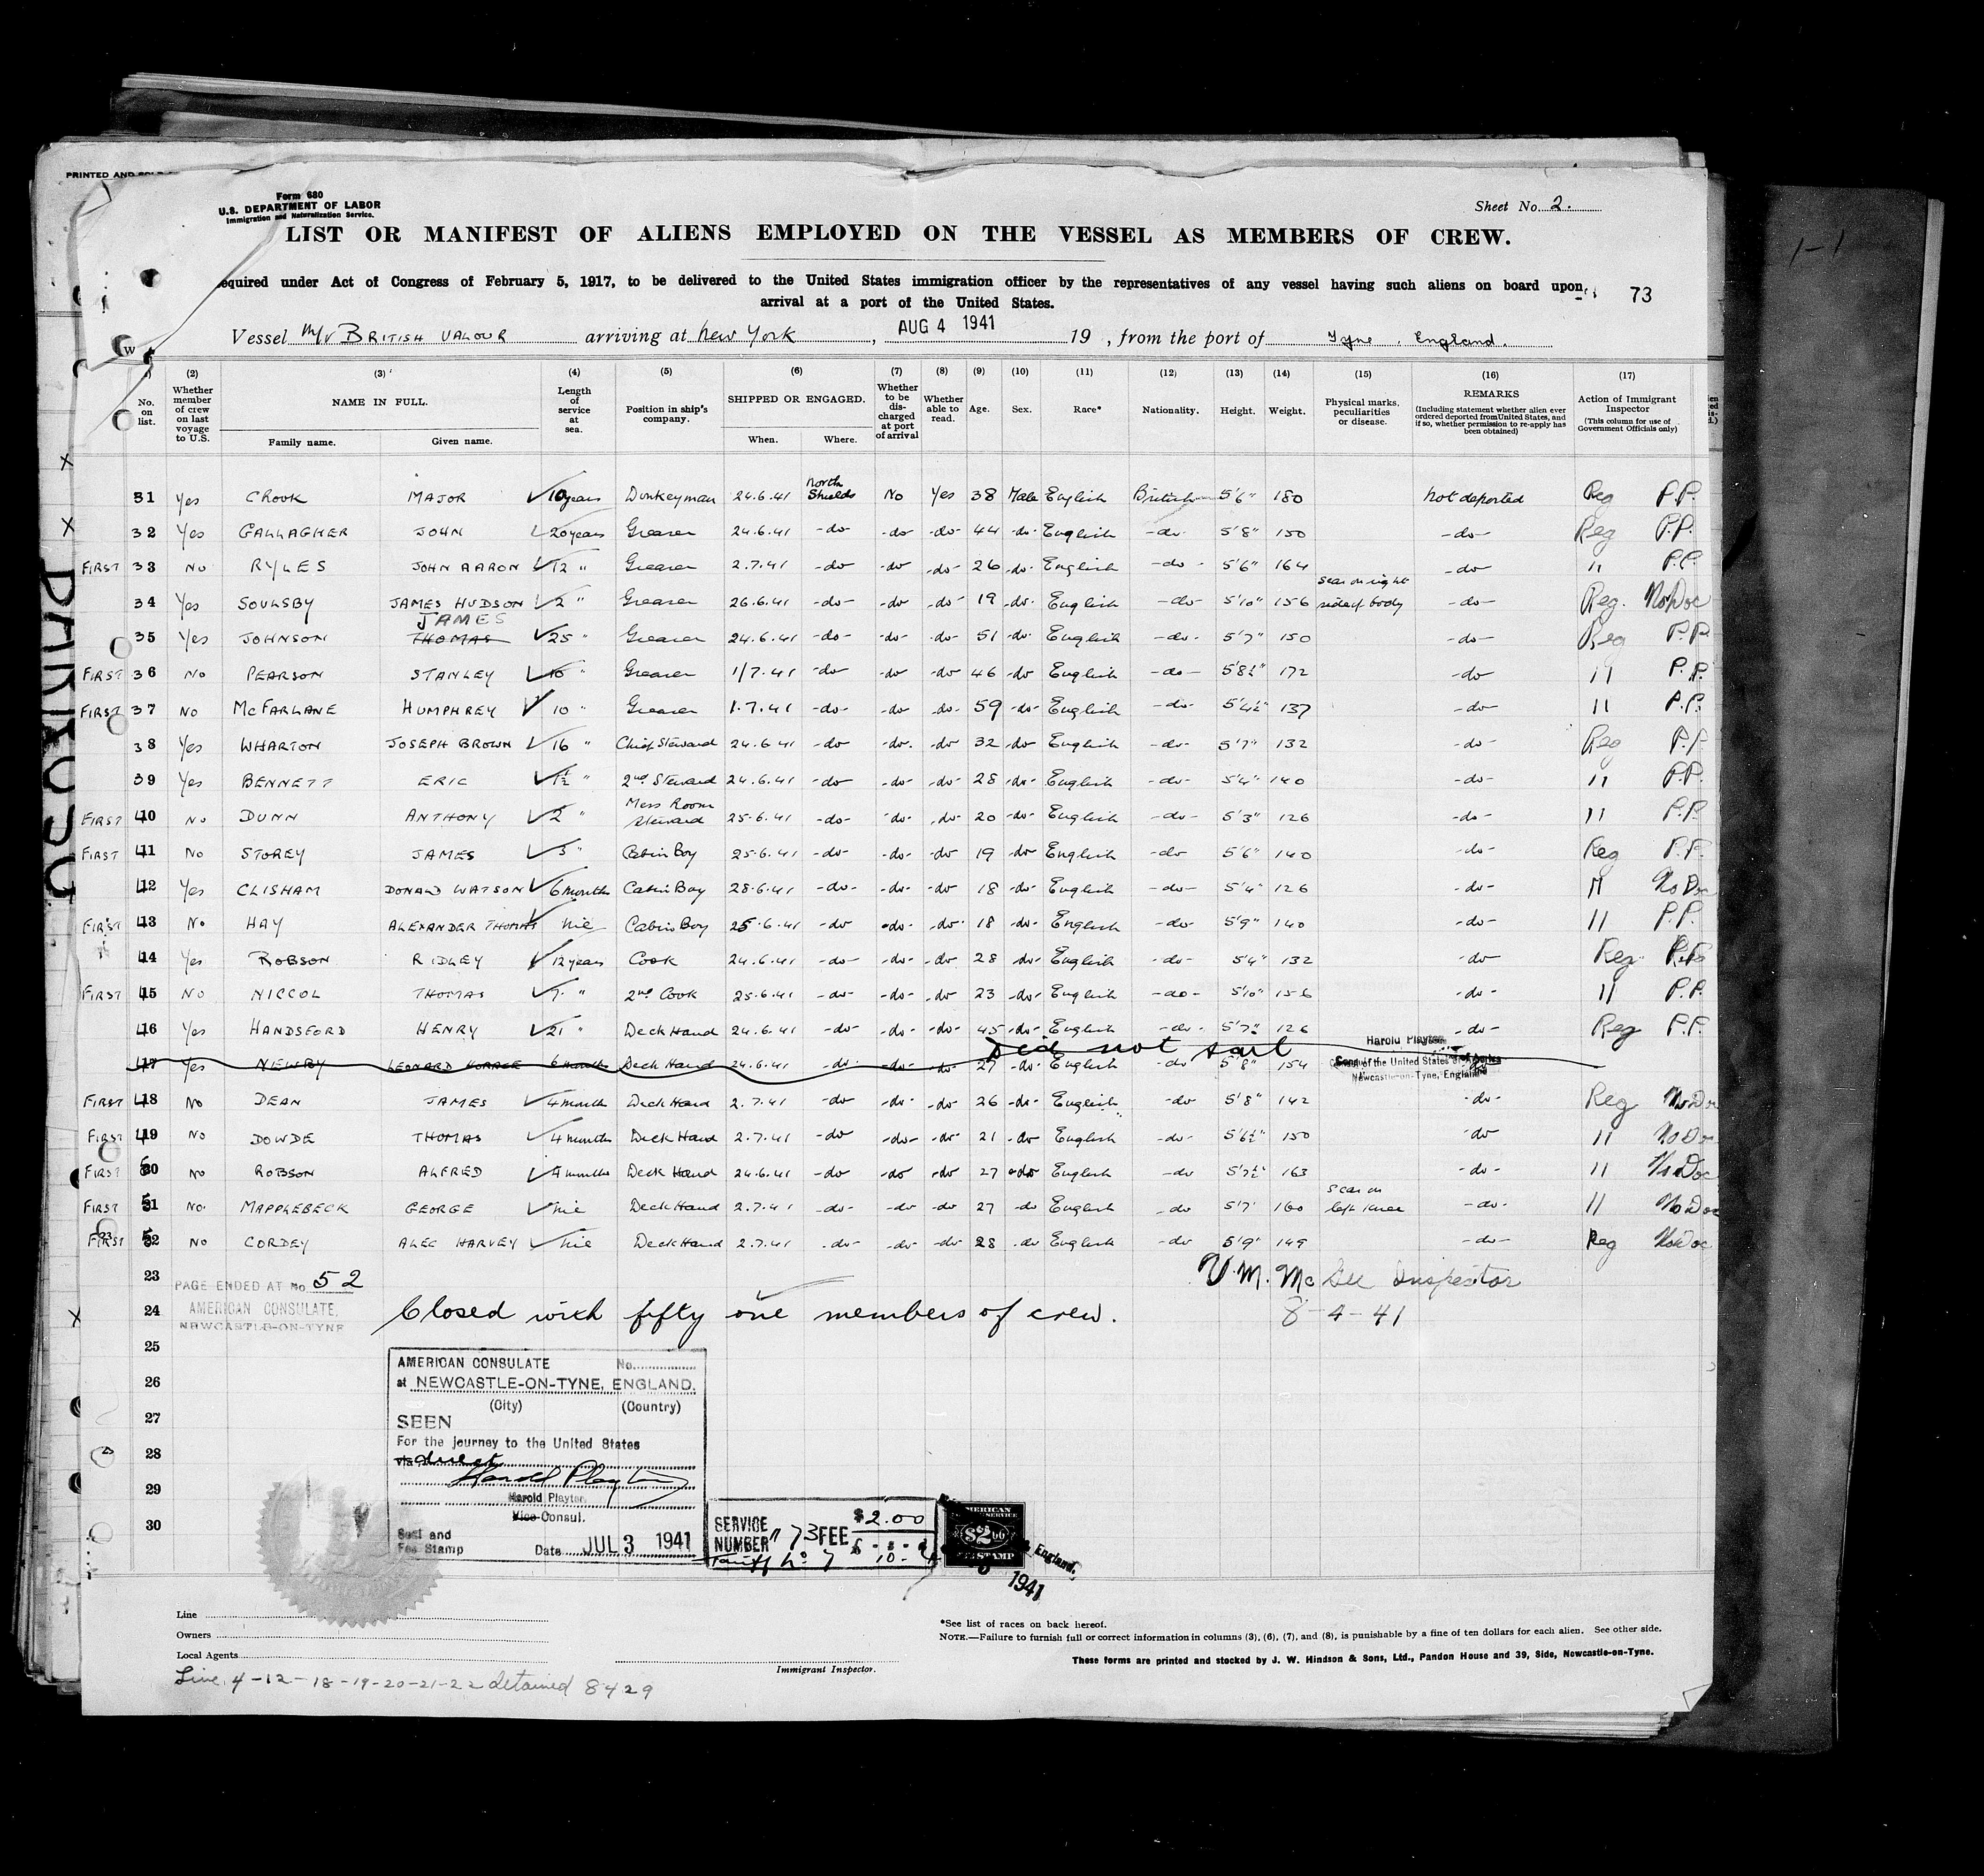 PRINTED AND SOLD
Form 680
U.S. DEPARTMENT OF LABOR
Immigration and Naturalization Service.
Sheet No. 2.
LIST OR MANIFEST OF ALIENS EMPLOYED ON THE VESSEL AS MEMBERS OF CREW.
equired under Act of Congress of February 5, 1917, to be delivered to the United States immigration officer by the representatives of any vessel having such aliens on board upon
arrival at a port of the United States.
73
Vessel M/V BRITISH VALOUR arriving at New York, AUG 4 1941 19 , from the port of Tyne. England.
(2) (3) (4) (5) (6) (7) (8) (9) (10) (11) (12) (13) (14) (15) (16) (17)
No. on list. Whether member of crew on last voyage to U.S. NAME IN FULL. Family name. Given name. Length of service at sea. Position in ship's company. SHIPPED OR ENGAGED. When. Where. Whether to be discharged at port of arrival Whether able to read. Age. Sex. Race* Nationality. Height. Weight. Physical marks, peculiarities or disease. REMARKS (Including statement whether alien ever ordered deported from United States, and if so, whether permission to re-apply has been obtained) Action of Immigrant Inspector (This column for use of Government Officials only)
31 Yes CROOK MAJOR 10 years Donkeyman 24.6.41 North Shields No Yes 38 Male English British 5'6" 180 not deported Reg P.P.
32 Yes GALLAGHER JOHN 20 years Greaser 24.6.41 -do- -do- -do- 44 -do- English -do- 5'8" 150 -do- Reg P.P.
FIRST 33 No RYLES JOHN AARON 12 " Greaser 2.7.41 -do -do -do- 26 -do- English -do- 5'6" 164 -do- " P.P.
34 Yes SOULSBY JAMES HUDSON 2 " Greaser 26.6.41 -do- -do- -do- 19 -do- English -do- 5'10" 156 scar on right side of body -do- Reg. No Doc
35 Yes JOHNSON THOMAS JAMES 25 " Greaser 24.6.41 -do- -do- -do- 51 -do- English -do- 5'7" 150 -do- Reg P.P.
FIRST 36 No PEARSON STANLEY 10 " Greaser 1/7.41 -do -do -do 46 -do English -do- 5'8½" 172 -do- " P.P.
FIRST 37 No McFARLANE HUMPHREY 10 " Greaser 1.7.41 -do- -do -do- 59 -do- English -do- 5'4½" 137 -do- " P.P.
38 Yes WHARTON JOSEPH BROWN 16 " Chief Steward 24.6.41 -do -do. -do 32 -do English -do- 5'7" 132 -do- Reg P.P.
39 Yes BENNETT ERIC 1½ " 2nd Steward 24.6.41 -do -do- -do- 28 -do- English -do- 5'4" 140 -do- " P.P.
FIRST 40 No DUNN ANTHONY 2 " Mess Room Steward 25.6.41 -do- -do- -do- 20 -do- English -do- 5'3" 126 -do- " P.P.
FIRST 41 No STOREY JAMES 3 " Cabin Boy 25.6.41 -do- -do- -do 19 -do English -do 5'6" 140 -do- Reg P.P.
42 Yes CLISHAM DONALD WATSON 6 months Cabin Boy 28.6.41 -do- -do- -do- 18 -do- English -do- 5'4" 126 -do- " No Doc
FIRST 43 No HAY ALEXANDER THOMAS nil Cabin Boy 25.6.41 -do -do- -do- 18 -do- English -do- 5'9" 140 -do- " P.P.
44 Yes ROBSON RIDLEY 12 years Cook 24.6.41 -do- -do- -do 28 -do- English -do- 5'4" 132 -do Reg
FIRST 45 No NICCOL THOMAS 7 " 2nd Cook 25.6.41 -do- -do- -do 23 -do- English -do- 5'10" 156 -do- " P.P.
46 Yes HANDSFORD HENRY 21 " Deck Hand 24.6.41 -do- -do- -do- 45 -do- English -do- 5'7½" 126 -do- Reg P.P.
47 Yes NEWBY LEONARD HORACE 6 months Deck Hand 24.6.41 -do- -do- -do 27 -do- English -do 5'8" 154
Did not sail
Harold Playter
Consul of the United States of America
Newcastle-on-Tyne, England
FIRST 48 No DEAN JAMES 4 months Deck Hand 2.7.41 -do -do- -do- 26 -do- English -do 5'8" 142 -do- Reg No Doc
FIRST 49 No DOWDE THOMAS 4 months Deck Hand 2.7.41 -do -do- -do- 21 -do English -do- 5'6½" 150 -do " No Doc
FIRST 50 No ROBSON ALFRED 4 months Deck Hand 24.6.41 -do -do -do 27 -do English -do 5'7½" 163 -do- " No Doc
FIRST 51 No. MAPPLEBECK GEORGE nil Deck Hand 2.7.41 -do- -do -do 27 -do English -do 5'7" 160 scar on left knee -do- " No Doc
FIRST 52 No CORDEY ALEC HARVEY nil Deck Hand 2.7.41 -do- -do -do- 28 -do English -do 5'9" 149 -do- Reg No Doc
23 PAGE ENDED AT No 52
V. M. McGee Inspector
24 AMERICAN CONSULATE,
NEWCASTLE-ON-TYNE
Closed with fifty one members of crew.
8-4-41
25
26
27
28
29
30
AMERICAN CONSULATE No.
at NEWCASTLE-ON-TYNE, ENGLAND.
(City) (Country)
SEEN
For the journey to the United States
via direct
Harold Playter
Harold Playter
Vice Consul.
Seal and
Fee Stamp
Date JUL 3 1941
SERVICE NUMBER 1173 FEE $2.00
Tariff No 7
AMERICAN
SERVICE
$2
STAMP
England.
1941
Line
Owners
Local Agents
Immigrant Inspector.
*See list of races on back hereof.
NOTE.—Failure to furnish full or correct information in columns (3), (6), (7), and (8), is punishable by a fine of ten dollars for each alien. See other side.
These forms are printed and stocked by J. W. Hindson & Sons, Ltd., Pandon House and 39, Side, Newcastle-on-Tyne.
Line 4-12-18-19-20-21-22 detained 8429